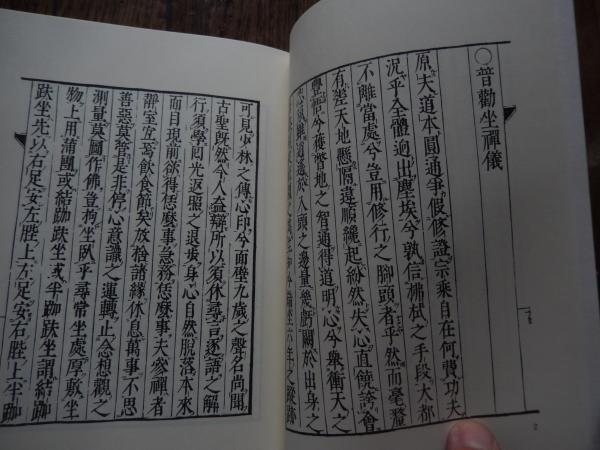 ○普勸坐禪儀
原夫道本圓通爭假修證宗乘自在何費功夫
況乎全體逈出塵埃兮孰信拂拭之手段大都
不離當處兮豈用修行之脚頭者乎然而毫釐
有差天地懸隔違順纔起紛然失心直饒誇會
豐悟兮獲瞥地之智通得道明心兮擧衝天之
志氣雖逍遙於入頭之邊量幾虧闕於出身之
端坐六年之蹤跡
2
可見少林之傳心印兮面壁九歲之聲名尚聞
古聖既然今人盍辦所以須休尋言逐語之解
行須學囘光返照之退步身心自然脫落本來
面目現前欲得恁麼事急務恁麼事夫參禪者
靜室宜焉飲食節矣放捨諸緣休息萬事不思
善惡莫管是非停心意識之運轉止念想觀之
測量莫圖作佛豈拘坐臥乎尋常坐處厚敷坐
物上用蒲團或結跏趺坐或半跏趺坐謂結跏
趺坐先以右足安左䏶上左足安右䏶上半跏